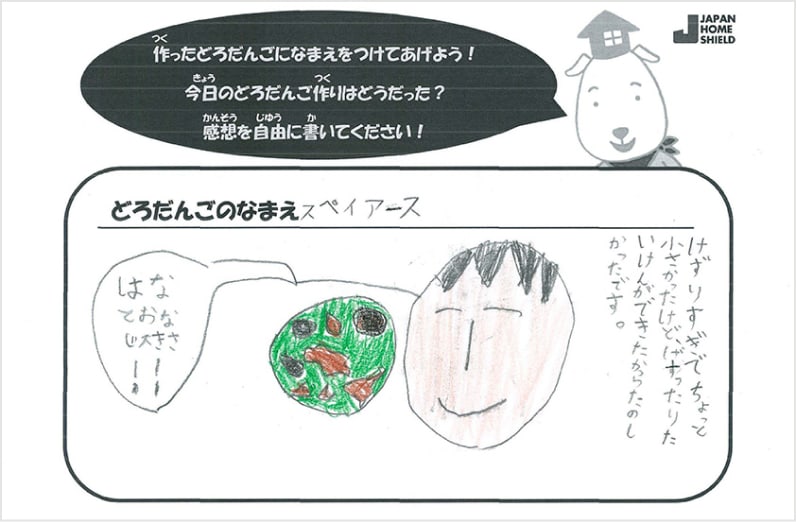 つく
作ったどろだんごになまえをつけてあげよう！
きょう つく
今日のどろだんご作りはどうだった？
かんそう じゆう か
感想を自由に書いてください！
JAPAN
HOME
SHIELD
どろだんごのなまえ スペイアース
けずりすぎでちょっと
小さかったけど、けずったりた
いけんができたからたのし
かったです。